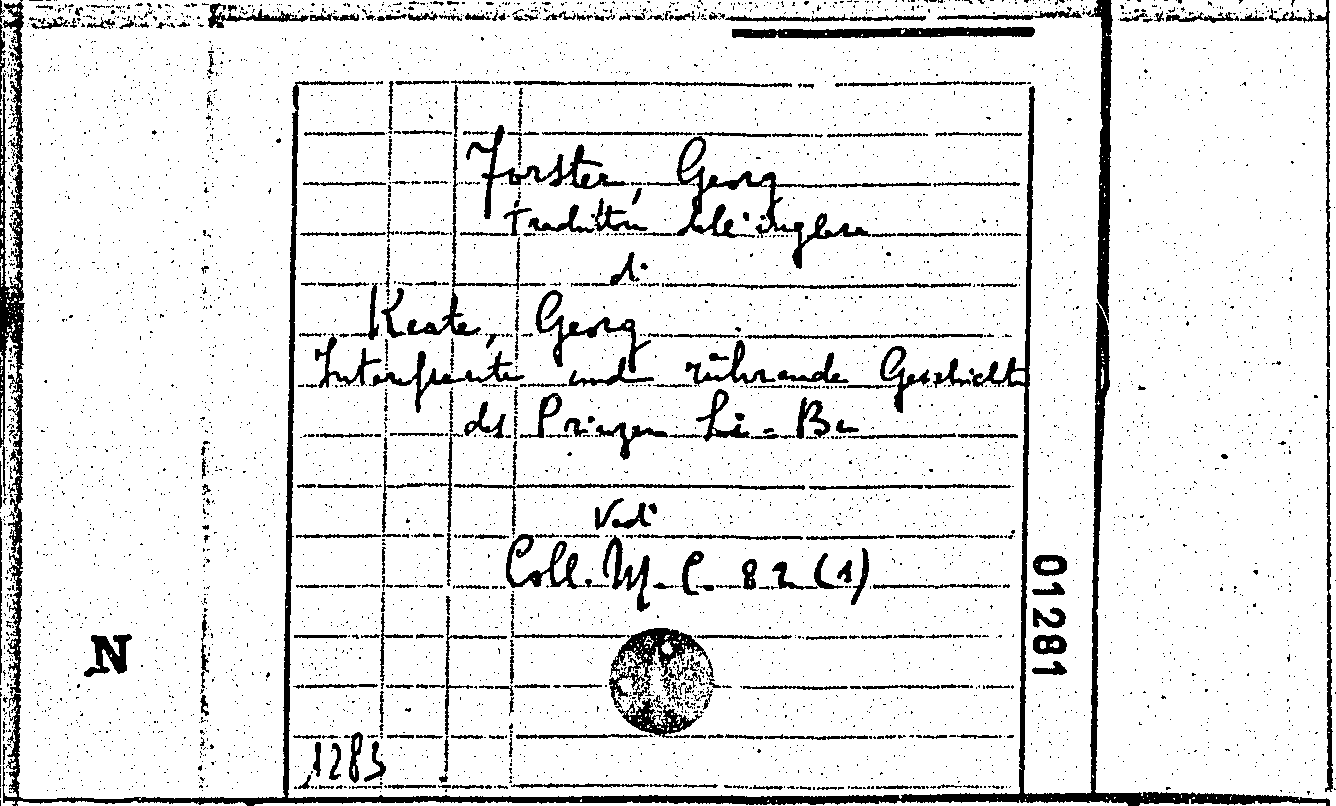 Forster, Georg
traduttore dall'inglese
di
Keate, Georg
Interessante und rührende Geschichte
des Prinzen Li-Bu
Vedi
Coll. M. C. 82 (1)
01281
N
1283